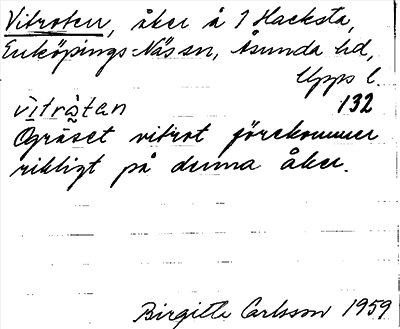 Vitroten, åker å 1 Hacksta,
Enköpings-Näs sn, Åsunda hd,
Upps l.
vìtròtan 132
Ogräset vitrot förekommer
rikligt på denna åker.
Birgitta Carlsson 1959